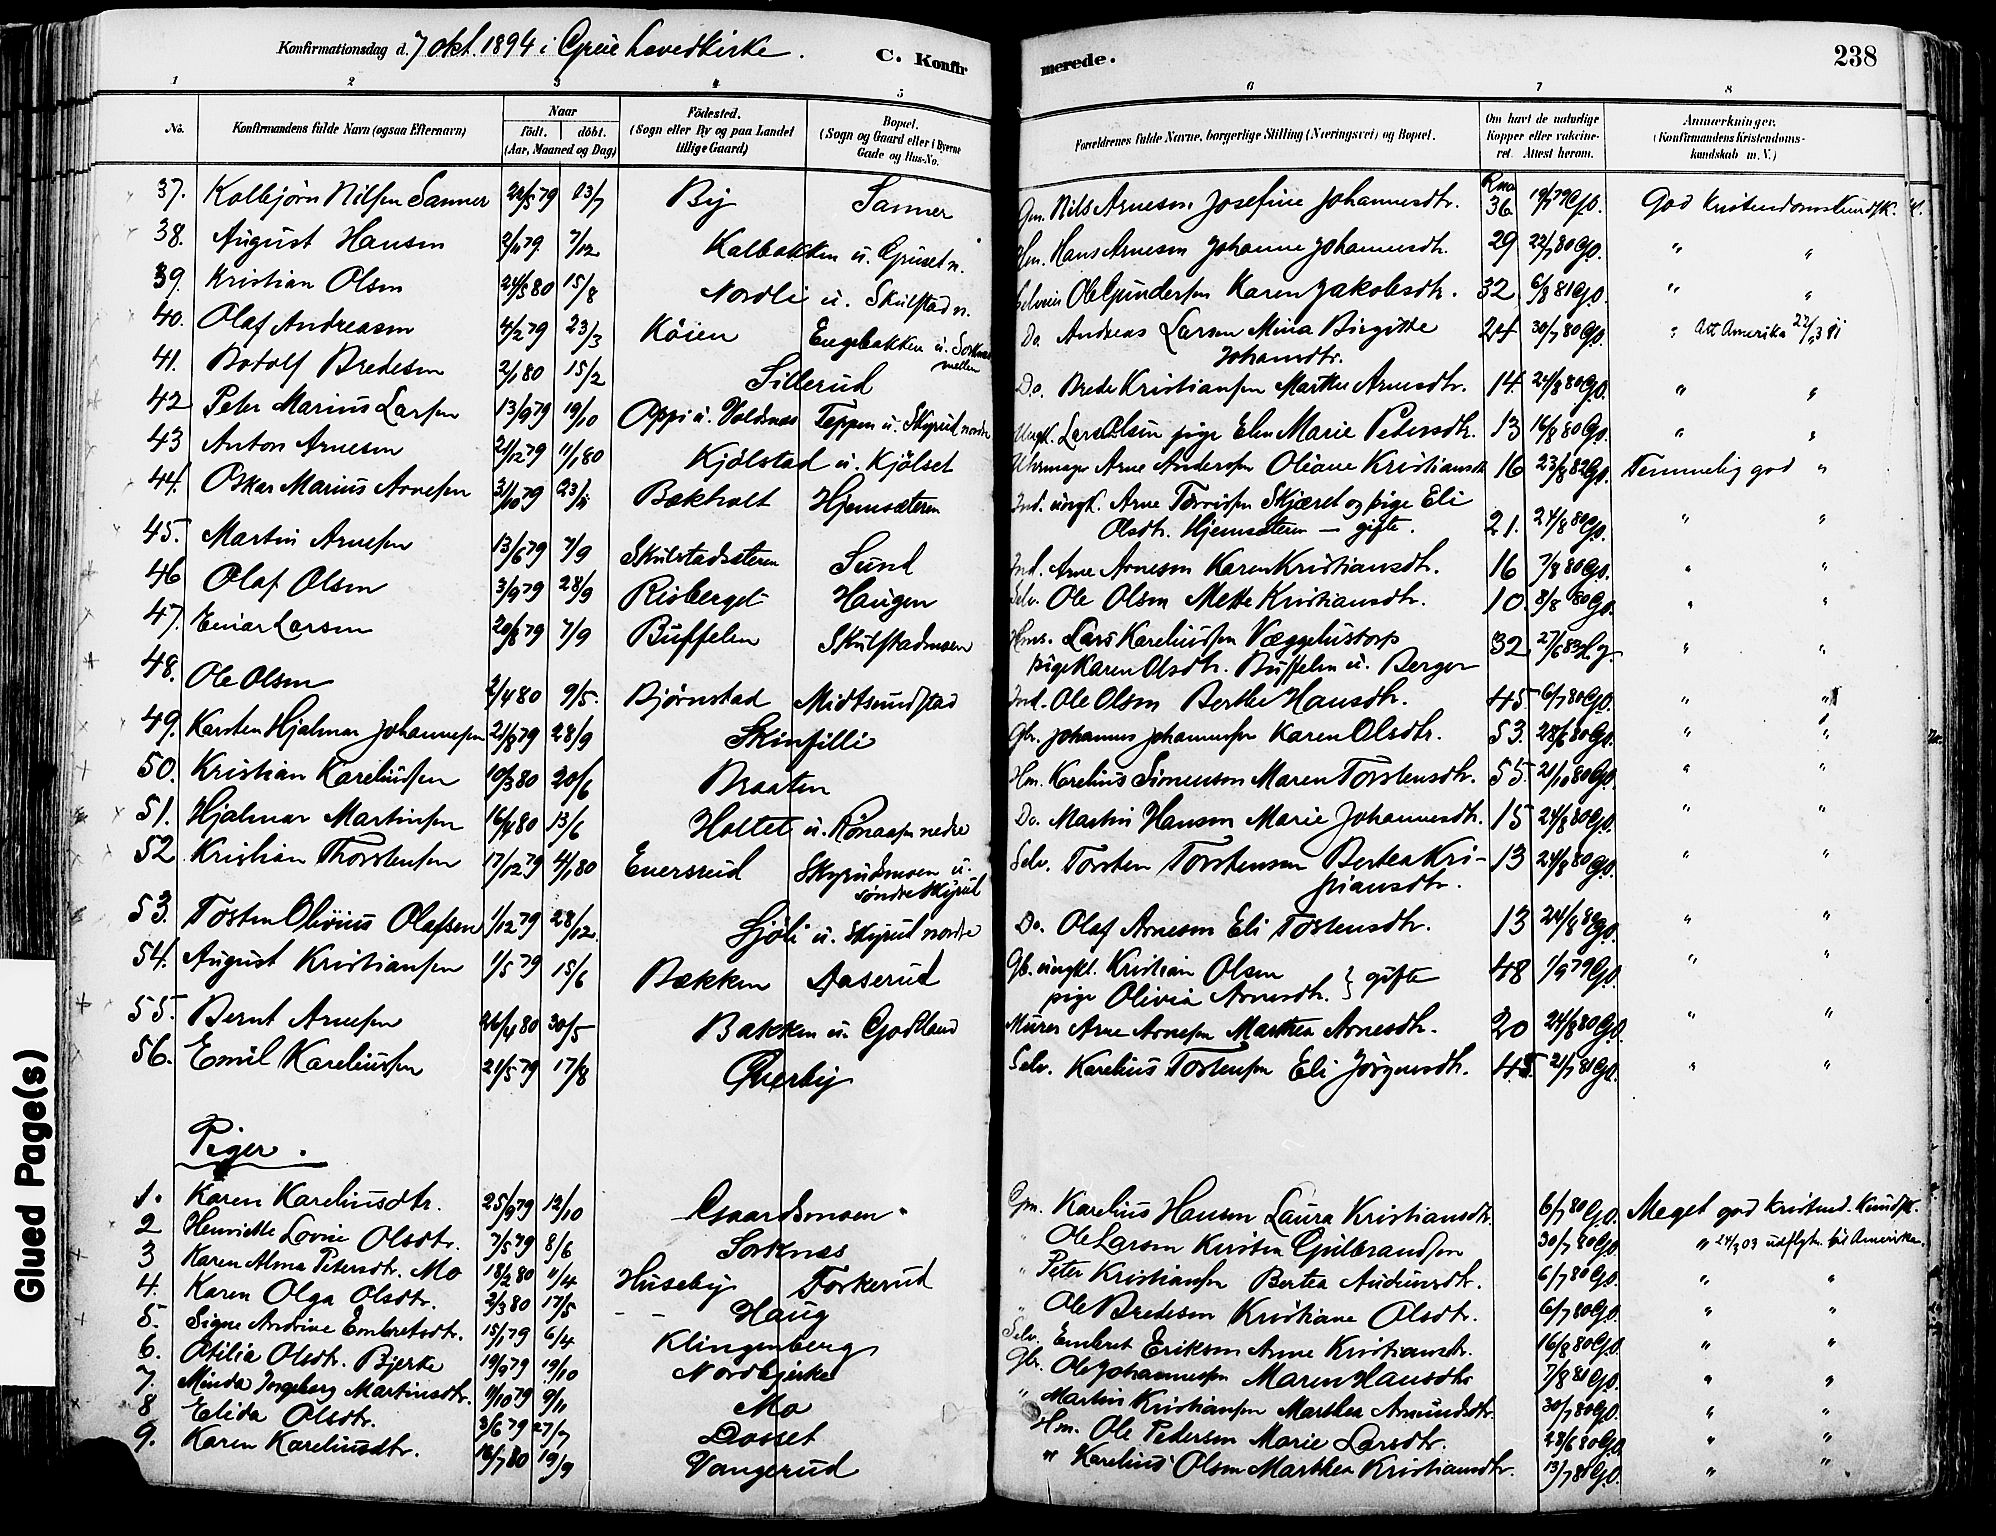 Konfirmationsdag d. 7 okt. 1894 i Grue hovedkirke.
C. Konfirmerede.
238
1 2 3 4 5 6 7 8
No. Konfirmandens fulde Navn (ogsaa Efternavn) Naar födt. döbt. (Aar, Maaned og Dag) Födested. (Sogn eller By og paa Landet tillige Gaard) Bopæl. (Sogn og Gaard eller i Byerne Gade og Hus-No. Forældrenes fulde Navne, borgerlige Stilling (Næringsvei) og Bopæl. Om havt de naturlige Kopper eller vaccineret. Attest herom. Anmærkninger. (Konfirmandens Kristendomskundskab m. V.)
37. Kolbjörn Nilsen Sanner 24/5 79 13/7 By Sanner Gm. Nils Arnesen Josefine Johannesdtr. 36 19/7 79 G.O. God Kristendomskundsk.
38. August Hansen 2/11 79 7/12 Kalbakken u. Gruset n. Hm. Hans Arnesen Johanne Johannesdtr. 29 22/7 80 G.O. " "
39. Kristian Olsen 24/5 80 15/8 Nordli u. Skulstad n. Selveier Ole Gundersen Karen Jakobsdtr. 32 6/8 81 G.O. " "
40. Olaf Andreasen 4/2 79 23/3 Köien Engebakken u. Sorknes mellem Do. Andreas Larsen Mina Birgitte Johansdtr. 24 30/7 80 G.O. " Att Amerika
41. Botolf Bredesen 2/1 80 15/2 Sillerud Do. Brede Kristiansen Marthe Arnesdtr. 14. 24/8 80 G.O. " "
42 Peter Marius Larsen 13/9 79 19/10 Oppi u. Voldnes Teppen u. Skyrud nordre Ungk. Lars Olsen pige Elen Marie Pedersdtr. 13 16/8 80 G.O. " "
43 Anton Arnesen 21/12 79 11/1 80 Kjölstad u. Kjölset Uhrmager Arne Andersen Oliane Kristiansdtr 16 23/8 82 G.O. Temmelig god "
44. Oskar Marius Arnesen 31/10 79 23/11 Bakholt Hjemsæteren Ind. ungk. Arne Torvisen Skjæret og pige Eli Olsdtr. Hjemsæteren — gifte. 21. 24/8 80 G.O. " "
45. Martin Arnesen 13/6 79 7/9 Skulstadsæteren Sund Ind. Arne Arnesen Karen Kristiansdtr. 16 7/8 80 G.O. " "
46 Olaf Olsen 3/9 79 28/9 Risberget Haugen Selv. Ole Olsen Mette Kristiansdtr. 10 8/8 80 G.O. " "
47. Einar Larsen 20/8 79 7/9 Buffelen Skulstadmoen Hms. Lars Kareliussen Væggehustorp pige Karen Olsdtr. Buffelen u. Berger 32 27/6 83 " "
48. Ole Olsen 2/4 80 9/5. Björnstad Midtsundstad Ind. Ole Olsen Berthe Hansdtr. 45. 6/7 80 G.O. " "
49. Karsten Hjalmar Johannesen 21/8 79 28/9 Skinfilli Gbr. Johannes Johannessen Karen Olsdtr. 53. 28/6 80 G.O. " "
50. Kristian Kareliussen 10/3 80 20/6 Braaten Hm. Karelius Simensen Maren Torstensdtr. 55. 21/10 80 G.O. " "
51. Hjalmar Martinsen 16/4 80 13/6 Holtet u. Rönaasen nedre Do. Martin Hansen Marie Johannesdtr. 15 24/8 80 G.O. " "
52 Kristian Thorstensen 17/12 79 4/1 80 Enersrud Skyrudmoen u. söndre Skyrud Selv. Torsten Torstensen Berthea Kristiansdtr. 13 24/8 80 G.O. " "
53. Tosten Olivius Olafsen 1/12 79 28/12. Sjöli u. Skyrud nordre Do. Olaf Arnesen Eli Tostensdtr. 13 24/8 80 G.O. " "
54. August Kristiansen 1/5 79 15/6 Bækken Aaserud Gb. ungkl. Kristian Olsen pige Olivia Arnesdtr. } gifte 48 1/9 79 G.O. " "
55. Bernt Arnesen 26/4 80 30/5 Bakken u. Godland Murer Arne Arnesen Marthea Arnesdtr. 20 24/8 80 G.O. " "
56. Emil Kareliussen 21/5 79 17/8 Qverby Selv. Karelius Tostensen Eli Jörgensdtr. 45. 21/7 81 G.O. " "
Piger.
1. Karen Kareliusdtr. 25/9 79 12/10 Gaardsmoen. Gm. Karelius Hansen Laura Kristiansdtr. 6/7 80 G.O. Meget god Kristend. Kundsk.
2 Henriette Lovise Olsdtr. 7/5 79 8/6 Sorknes " Ole Larsen Kirsten Gulbrandsen 30/7 80 G.O. " 24/3 03 udflytn. til Amerika.
3 Karen Alma Petersdtr. Mo 18/2 80 11/4 Huseby Torkerud " Peter Kristiansen Berthea Audunsdtr. 6/7 80 G.O. " "
4. Karen Olga Olsdtr. 2/3 80 17/5 Haug " Ole Bredesen Kristiane Olsdtr. 6/7 80 G.O. " "
5. Signe Andrine Embretsdtr. 15/1 79 6/4 Klingenberg Selv. Embret Eriksen Anne Kristiansdtr. 16/8 80 G.O. " "
6. Otilia Olsdtr. Bjerke 19/9 79 19/10 Nordbjerke Gbr. Ole Johannessen Maren Hansdtr 7/8 81 G.O. " "
7. Minda Ingeborg Martinsdtr. 9/10 79 9/11 Mo " Martin Kristiansen Marthea Amundsdtr. 30/7 80 G.O. " "
8 Elida Olsdtr. 3/6 79 27/7 Dosset Hm. Ole Pedersen Marie Larsdtr. 28/6 80 G.O. " "
9. Karen Kareliusdtr. 16/7 80 19/9 Vangerud " Karelius Olsen Marthea Kristiansdtr. 13/7 81 G.O. " "
Glued Page(s)